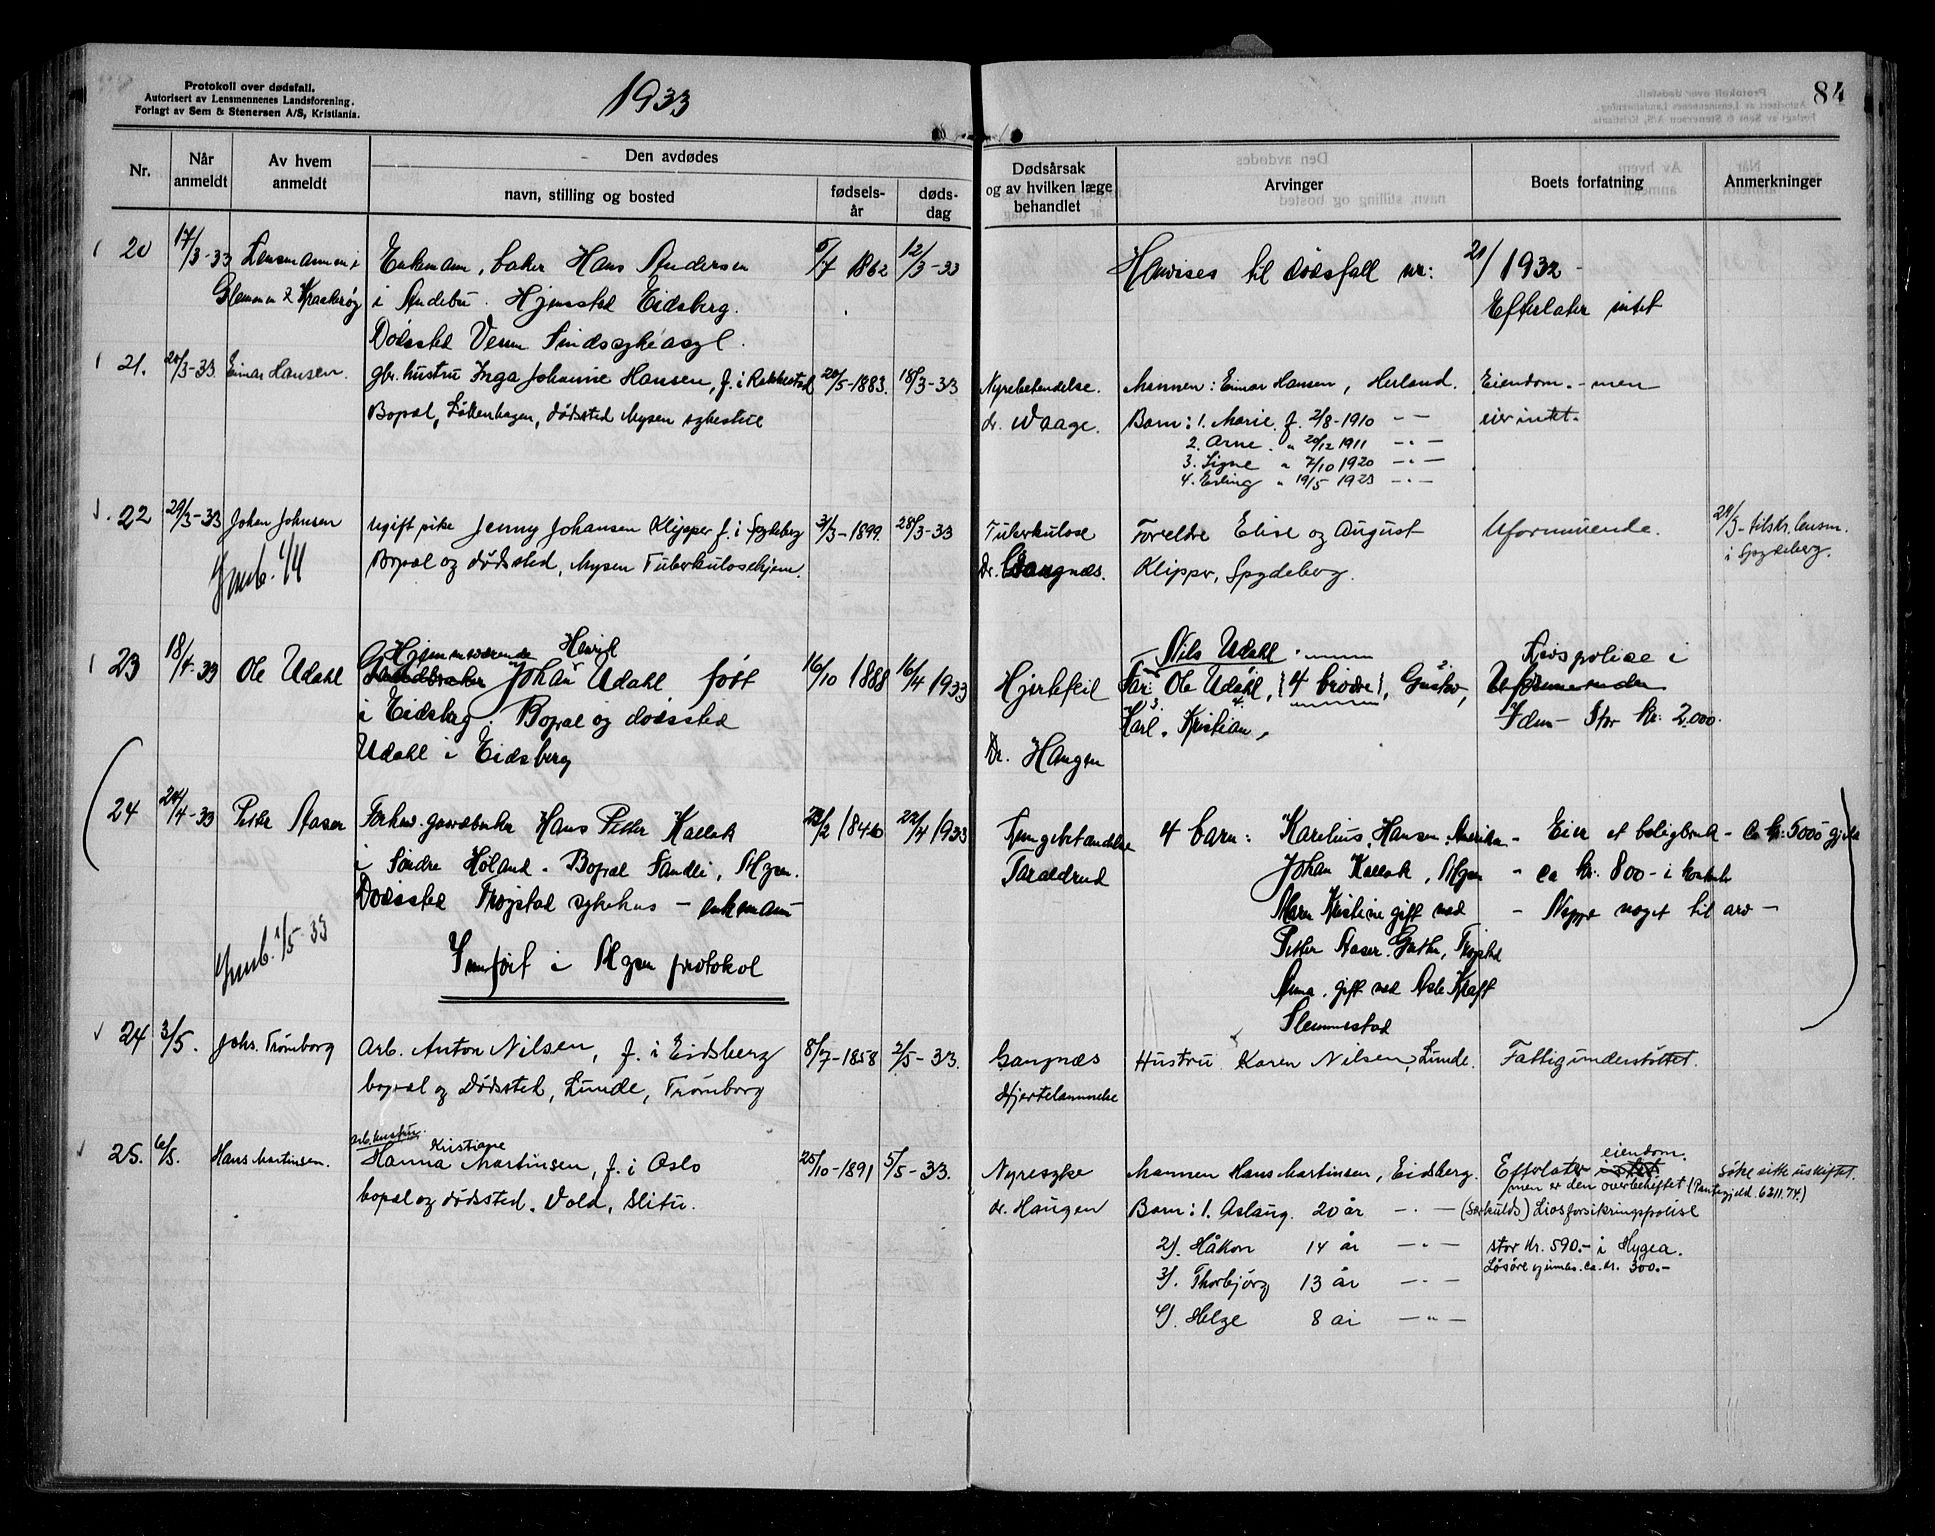 Protokoll over dødsfall.
Autorisert av Lensmennenes Landsforening.
Forlagt av Sem & Stenersen A/S, Kristiania.
1933
84
Nr.
Når anmeldt
Av hvem anmeldt
Den avdødes
navn, stilling og bosted
fødsels-år
døds-dag
Dødsårsak og av hvilken læge behandlet
Arvinger
Boets forfatning
Anmerkninger
20 17/3-33 Lensmannen i Enkemann, baker Hans Andersen 5/7 1862 12/3-33 Henvises til dødsfall nr: 21/1932 -
Glemmen & Kråkerøy i Andebu. Hjemsted Eidsberg. Efterlater intet
Dødssted Veum Sindssykeasyl.
21. 20/3-33 Einar Hansen. gbr. hustru Inga Johanne Hansen, f. i Rakkestad 20/5-1883. 18/3-33 Nyrebetendelse. Mannen: Einar Hansen, Herland. Eiendom. - men
Bopæl, Løkenhagen, dødsted Mysen sykestue dr. Waage. Barn: 1. Marie f. 2/8-1910 — — eier intet.
2. Arne. " 20/12 1911 — " —
3. Signe " 7/10 1920 — " —
4. Erling " 19/5 1923 — " —
22 29/3-33 Johan Johnsen ugift pike Jenny Johansen Klipper f. i Spydeberg 3/3-1899. 28/3-33 Tuberkulose Foreldre Elise og August Uformuende. 29/3-tilskr. lensm.
Bopæl og dødssted, Mysen Tuberkulosehjem. Dr. Gangnæs. Klipper, Spydeberg. i Spydeberg.
Innb. 1/4
23 18/4-33 Ole Udahl Hjemmeværende Henrik
Gårdbruker Johan Udahl født 16/10 1888 16/4 1933 Hjertefeil Nils Udahl Livspolise i
i Eidsberg. Bopæl og dødssted Far: Ole Udahl, (4 brødre), Gustav, Uformuende
Karl, Kristian, Idun - Stor kr: 2.000.
Udahl i Eidsberg Dr. Haugen
24 24/4-33 Petter Aaser Forhenv. gaardbruker Hans Petter Kallak 23/2 1846 22/4 1933 Lungebetændelse 4 barn: Karelius Hansen, Amerika - Eier et boligbruk - ca kr: 5000 gjeld
i Søndre Høland. Bopæl Sandli, Mysen. Taraldrud Johan Kallak, Mysen - ca kr. 800 - i kontanter
Dødssted Trøgstad sykehus - enkemann Maren Kristine gift med - Neppe noget til arv -
Innb. 1/5-33 Petter Aaser. , Trøgstad
Innført i Mysen protokol Anna, gift med Asle Kraft
Slemmestad
24 3/5. Johs. Trømborg Arb. Anton Nilsen, f. i Eidsberg 8/7-1858 2/5-33. Gangnæs Hustru Karen Nilsen, Lunde. Fattigunderstøttet.
bopæl og Dødssted, Lunde, Trømborg Hjertelammelse
25. 6/5. Hans Martinsen. arb. hustru. Kristiane
Hanna Martinsen, f. i Oslo 25/10-1891 5/5-33. Nyresyke Mannen Hans Martinsen, Eidsberg. Efterlater intet. eiendom. Søke sitte uskiftet.
men er den overbeheftet (Pantegjeld. 6211.74.)
bopæl og dødsted. Vold, Slitu. dr. Haugen Barn: 1. Aslaug. 20 år — " — (Særkulds) Livsforsikringspolise
2). Håkon 14 år — " — stor kr. 590.- i Hygea.
3). Thorbjørg 13 år — " — Løsøre . ca. kr. 300.-
4). Helge 8 år — " —